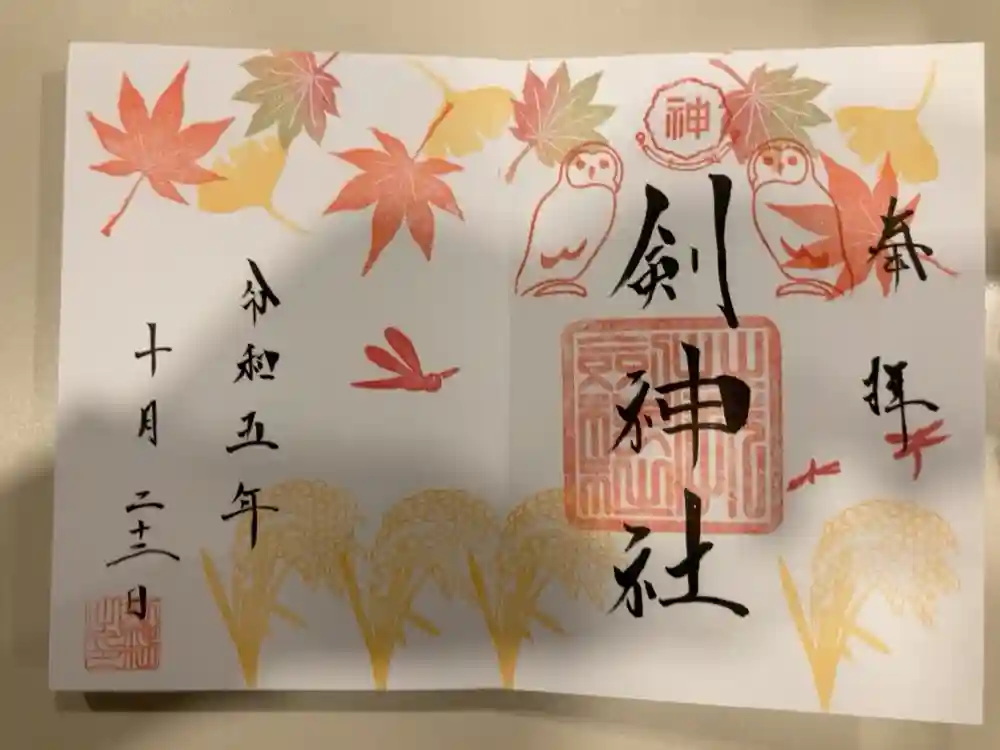 奉拝
神
剣神社
令和五年
十月二十二日